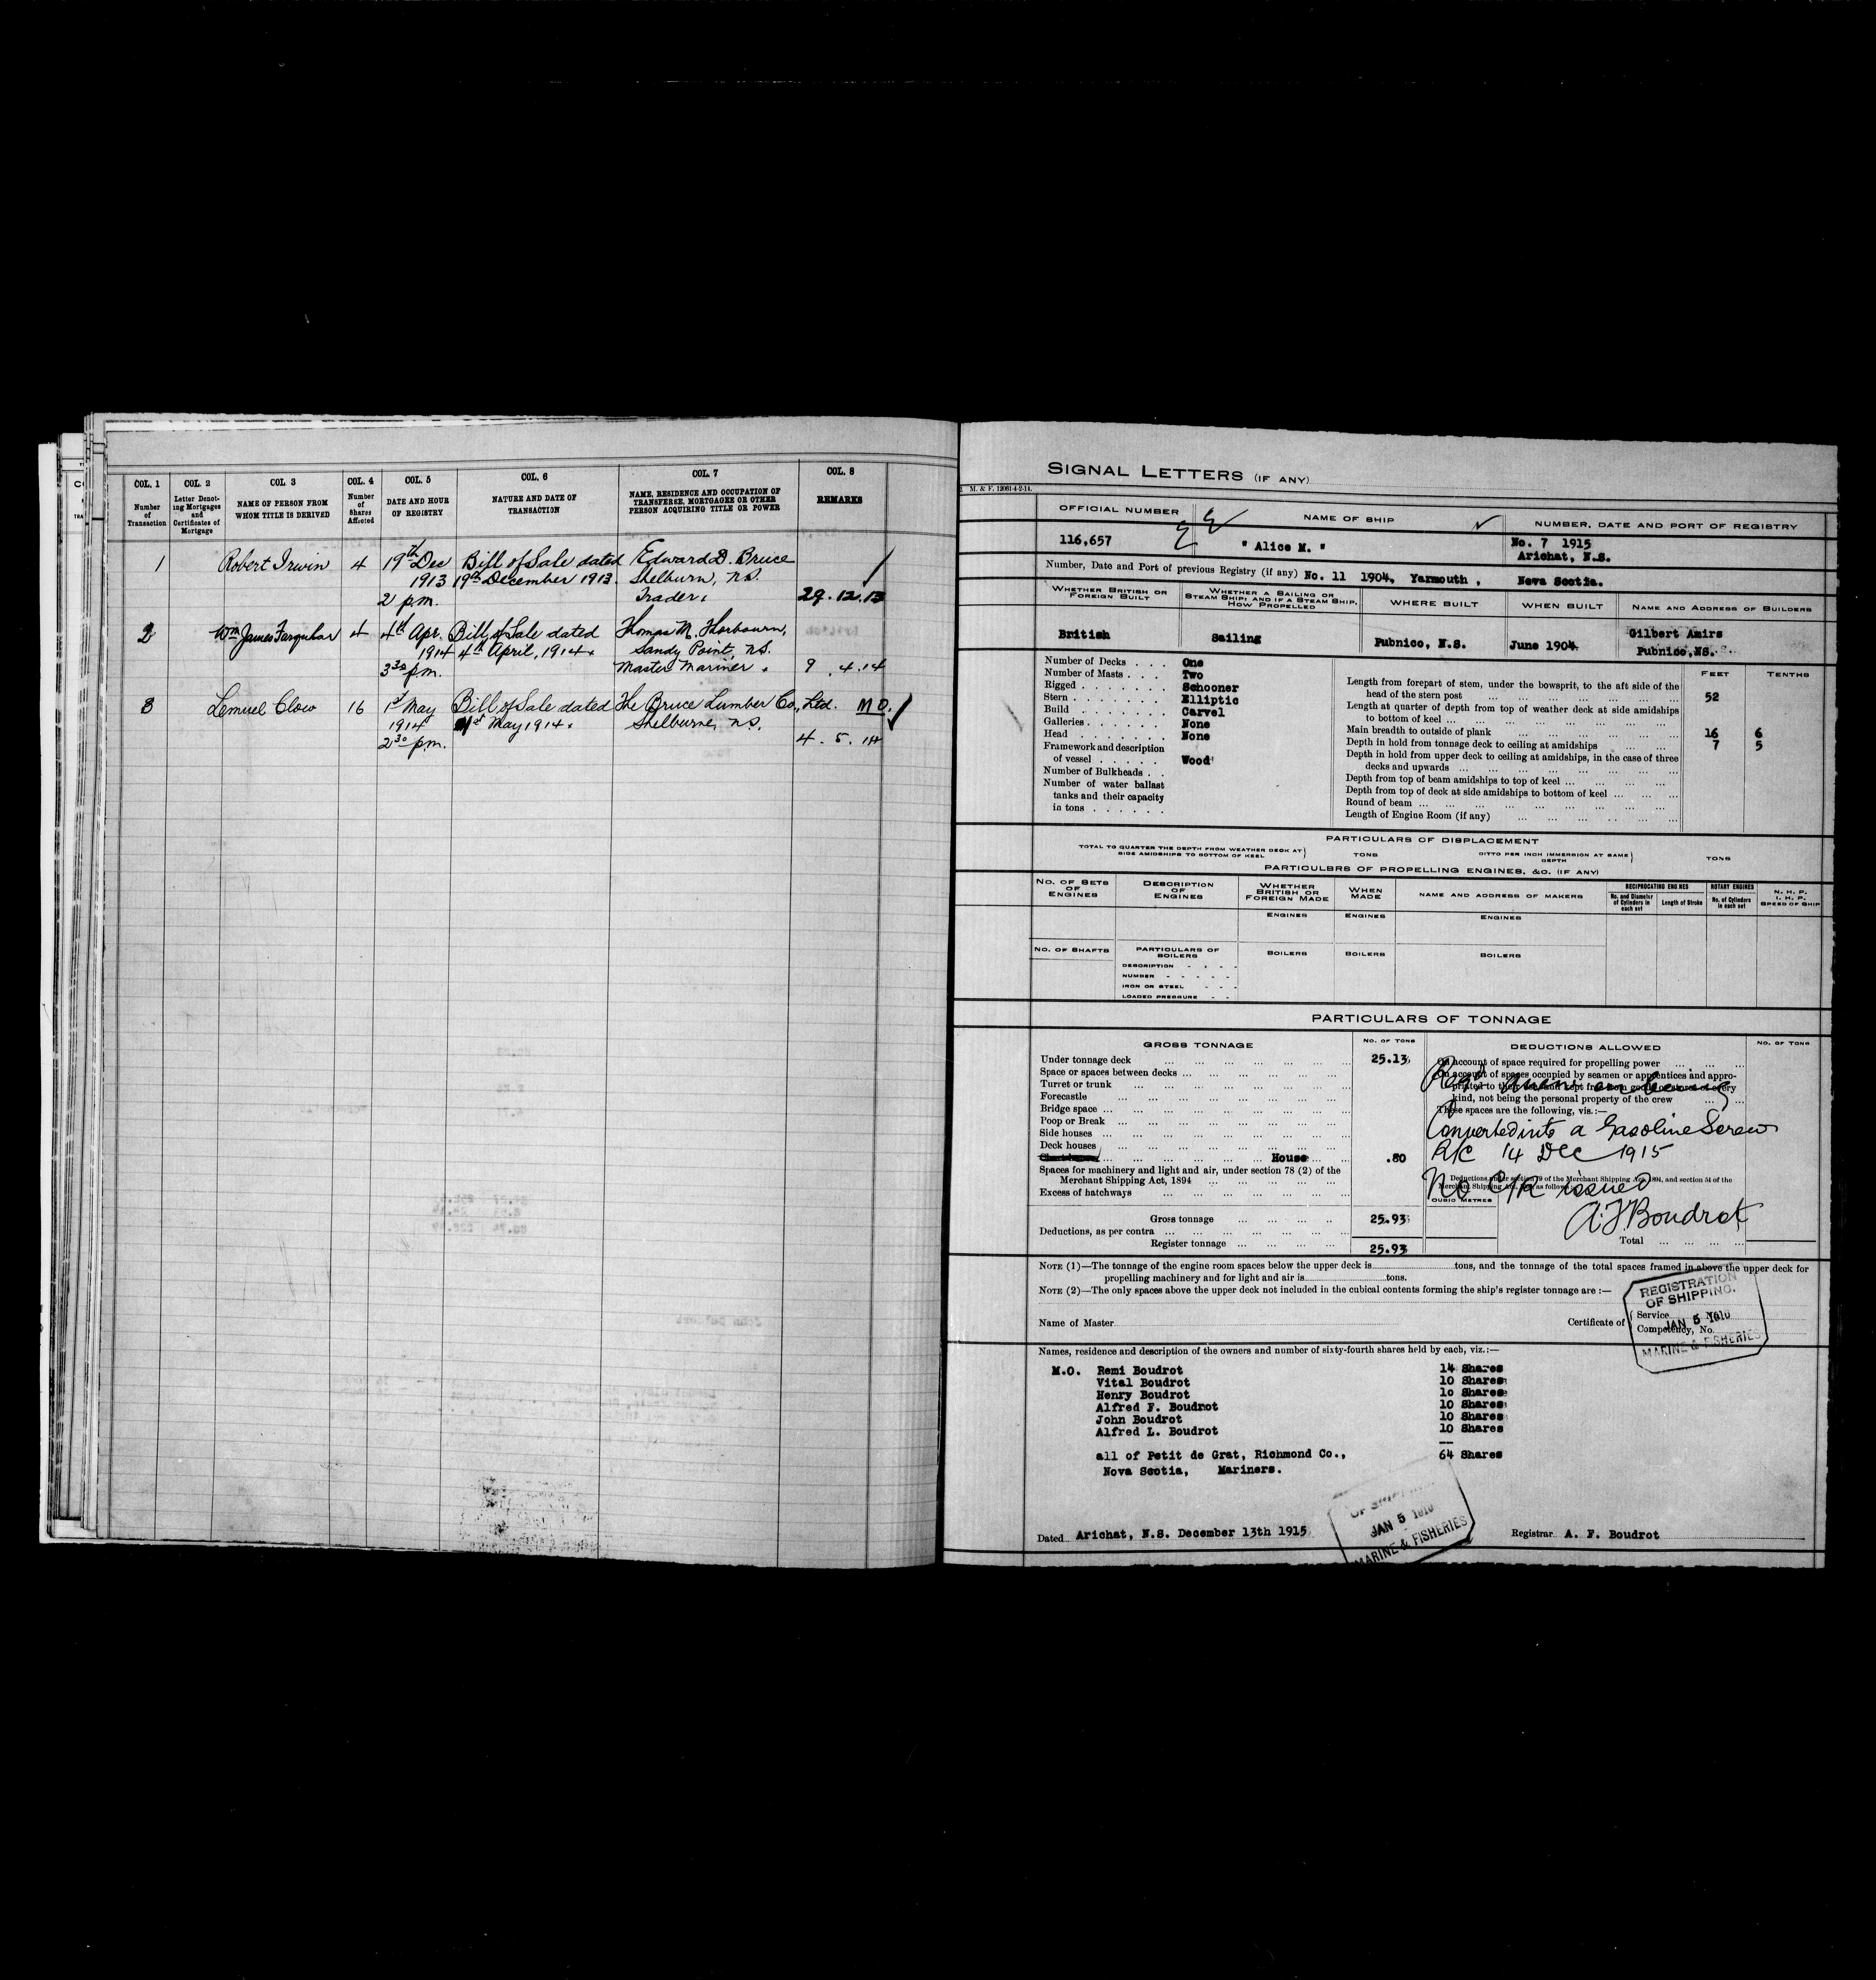 COL. 1 COL. 2 COL. 3 COL. 4 COL. 5 COL. 6 COL. 7 COL. 8
Number of Transaction
Letter Denoting Mortgages and Certificates of Mortgage
NAME OF PERSON FROM WHOM TITLE IS DERIVED
Number of Shares Affected
DATE AND HOUR OF REGISTRY
NATURE AND DATE OF TRANSACTION
NAME, RESIDENCE AND OCCUPATION OF TRANSFERSE, MORTGAGEE OR OTHER PERSON ACQUIRING TITLE OR POWER
REMARKS
1 Robert Irwin 4 19th Dec Bill of Sale dated Edward D. Bruce
1913 19th December 1913. Shelburn, N.S.
2 p.m. Trader. 29.12.13
2 Wm James Farquhar 4 4th Apr. Bill of Sale dated Thomas M. Horbourn,
1914 4th April, 1914. Sandy Point, N.S.
3 30 p.m. Master Mariner. 9.4.14
3 Lemuel Clow 16 1st May Bill of Sale dated The Bruce Lumber Co., Ltd. M O.
1914 1st May 1914. Shelburne, N.S.
2 30 p.m. 4.5.14
SIGNAL LETTERS (IF ANY)
M. & F. 12061-4-2-14.
OFFICIAL NUMBER NAME OF SHIP NUMBER, DATE AND PORT OF REGISTRY
116,657 " Alice M. " No. 7 1915
Arichat, N.S.
Number, Date and Port of previous Registry (if any) No. 11 1904, Yarmouth , Nova Scotia.
WHETHER BRITISH OR FOREIGN BUILT
WHETHER A SAILING OR STEAM SHIP; AND IF A STEAM SHIP, HOW PROPELLED
WHERE BUILT WHEN BUILT NAME AND ADDRESS OF BUILDERS
British Sailing Pubnico, N.S. June 1904 Gilbert Amirs
Pubnico,NS.
Number of Decks . . . One
Number of Masts . . . Two
Rigged . . . . . . . Schooner
Stern . . . . . . . . Elliptic
Build . . . . . . . Carvel
Galleries . . . . . . None
Head . . . . . . . None
Framework and description
of vessel . . . . . Wood
Number of Bulkheads . .
Number of water ballast
tanks and their capacity
in tons . . . . . .
FEET TENTHS
Length from forepart of stem, under the bowsprit, to the aft side of the
head of the stern post 52
Length at quarter of depth from top of weather deck at side amidships
to bottom of keel
Main breadth to outside of plank 16 6
Depth in hold from tonnage deck to ceiling at amidships 7 5
Depth in hold from upper deck to ceiling at amidships, in the case of three
decks and upwards
Depth from top of beam amidships to top of keel
Depth from top of deck at side amidships to bottom of keel
Round of beam
Length of Engine Room (if any)
PARTICULARS OF DISPLACEMENT
TOTAL TO QUARTER THE DEPTH FROM WEATHER DECK AT SIDE AMIDSHIPS TO BOTTOM OF KEEL TONS DITTO PER INCH IMMERSION AT SAME DEPTH TONS
PARTICULBRS OF PROPELLING ENGINES, &C. (IF ANY)
NO. OF SETS OF ENGINES
DESCRIPTION OF ENGINES
WHETHER BRITISH OR FOREIGN MADE
WHEN MADE
NAME AND ADDRESS OF MAKERS
RECIPROCATING ENGINES
No. and Diameter of Cylinders in each set
Length of Stroke
ROTARY ENGINES
No. of Cylinders in each set
N. H. P.
I. H. P.
SPEED OF SHIP
ENGINES ENGINES ENGINES
NO. OF SHAFTS PARTICULARS OF BOILERS BOILERS BOILERS BOILERS
DESCRIPTION
NUMBER
IRON OR STEEL
LOADED PRESSURE
PARTICULARS OF TONNAGE
GROSS TONNAGE NO. OF TONS DEDUCTIONS ALLOWED NO. OF TONS
Under tonnage deck 25.13
Space or spaces between decks
Turret or trunk
Forecastle
Bridge space
Poop or Break
Side houses
Deck houses
House .80
Spaces for machinery and light and air, under section 78 (2) of the
Merchant Shipping Act, 1894
Excess of hatchways
Gross tonnage 25.93
Deductions, as per contra
Register tonnage 25.93
On account of space required for propelling power
On account of spaces occupied by seamen or apprentices and appropriated to
kind, not being the personal property of the crew
These spaces are the following, vis.:—
Converted into a Gasoline Screw
R/C 14 Dec 1915
Deductions under section 79 of the Merchant Shipping Act, 1894, and section 54 of the
No C/R issued
CUBIC METRES
A.F. Boudrot
Total
NOTE (1)—The tonnage of the engine room spaces below the upper deck is tons, and the tonnage of the total spaces framed in above the upper deck for
propelling machinery and for light and air is tons.
NOTE (2)—The only spaces above the upper deck not included in the cubical contents forming the ship's register tonnage are :—
REGISTRATION
OF SHIPPING.
JAN 5 1916
MARINE & FISHERIES
Name of Master Certificate of Service No.
Competency, No.
Names, residence and description of the owners and number of sixty-fourth shares held by each, viz.:—
M.O. Remi Boudrot 14 Shares
Vital Boudrot 10 Shares
Henry Boudrot 10 Shares
Alfred F. Boudrot 10 Shares
John Boudrot 10 Shares
Alfred L. Boudrot 10 Shares
all of Petit de Grat, Richmond Co., 64 Shares
Nova Scotia, Mariners.
OF SHIPPING
JAN 5 1916
MARINE & FISHERIES
Dated Arichat, N.S. December 13th 1915 Registrar A. F. Boudrot